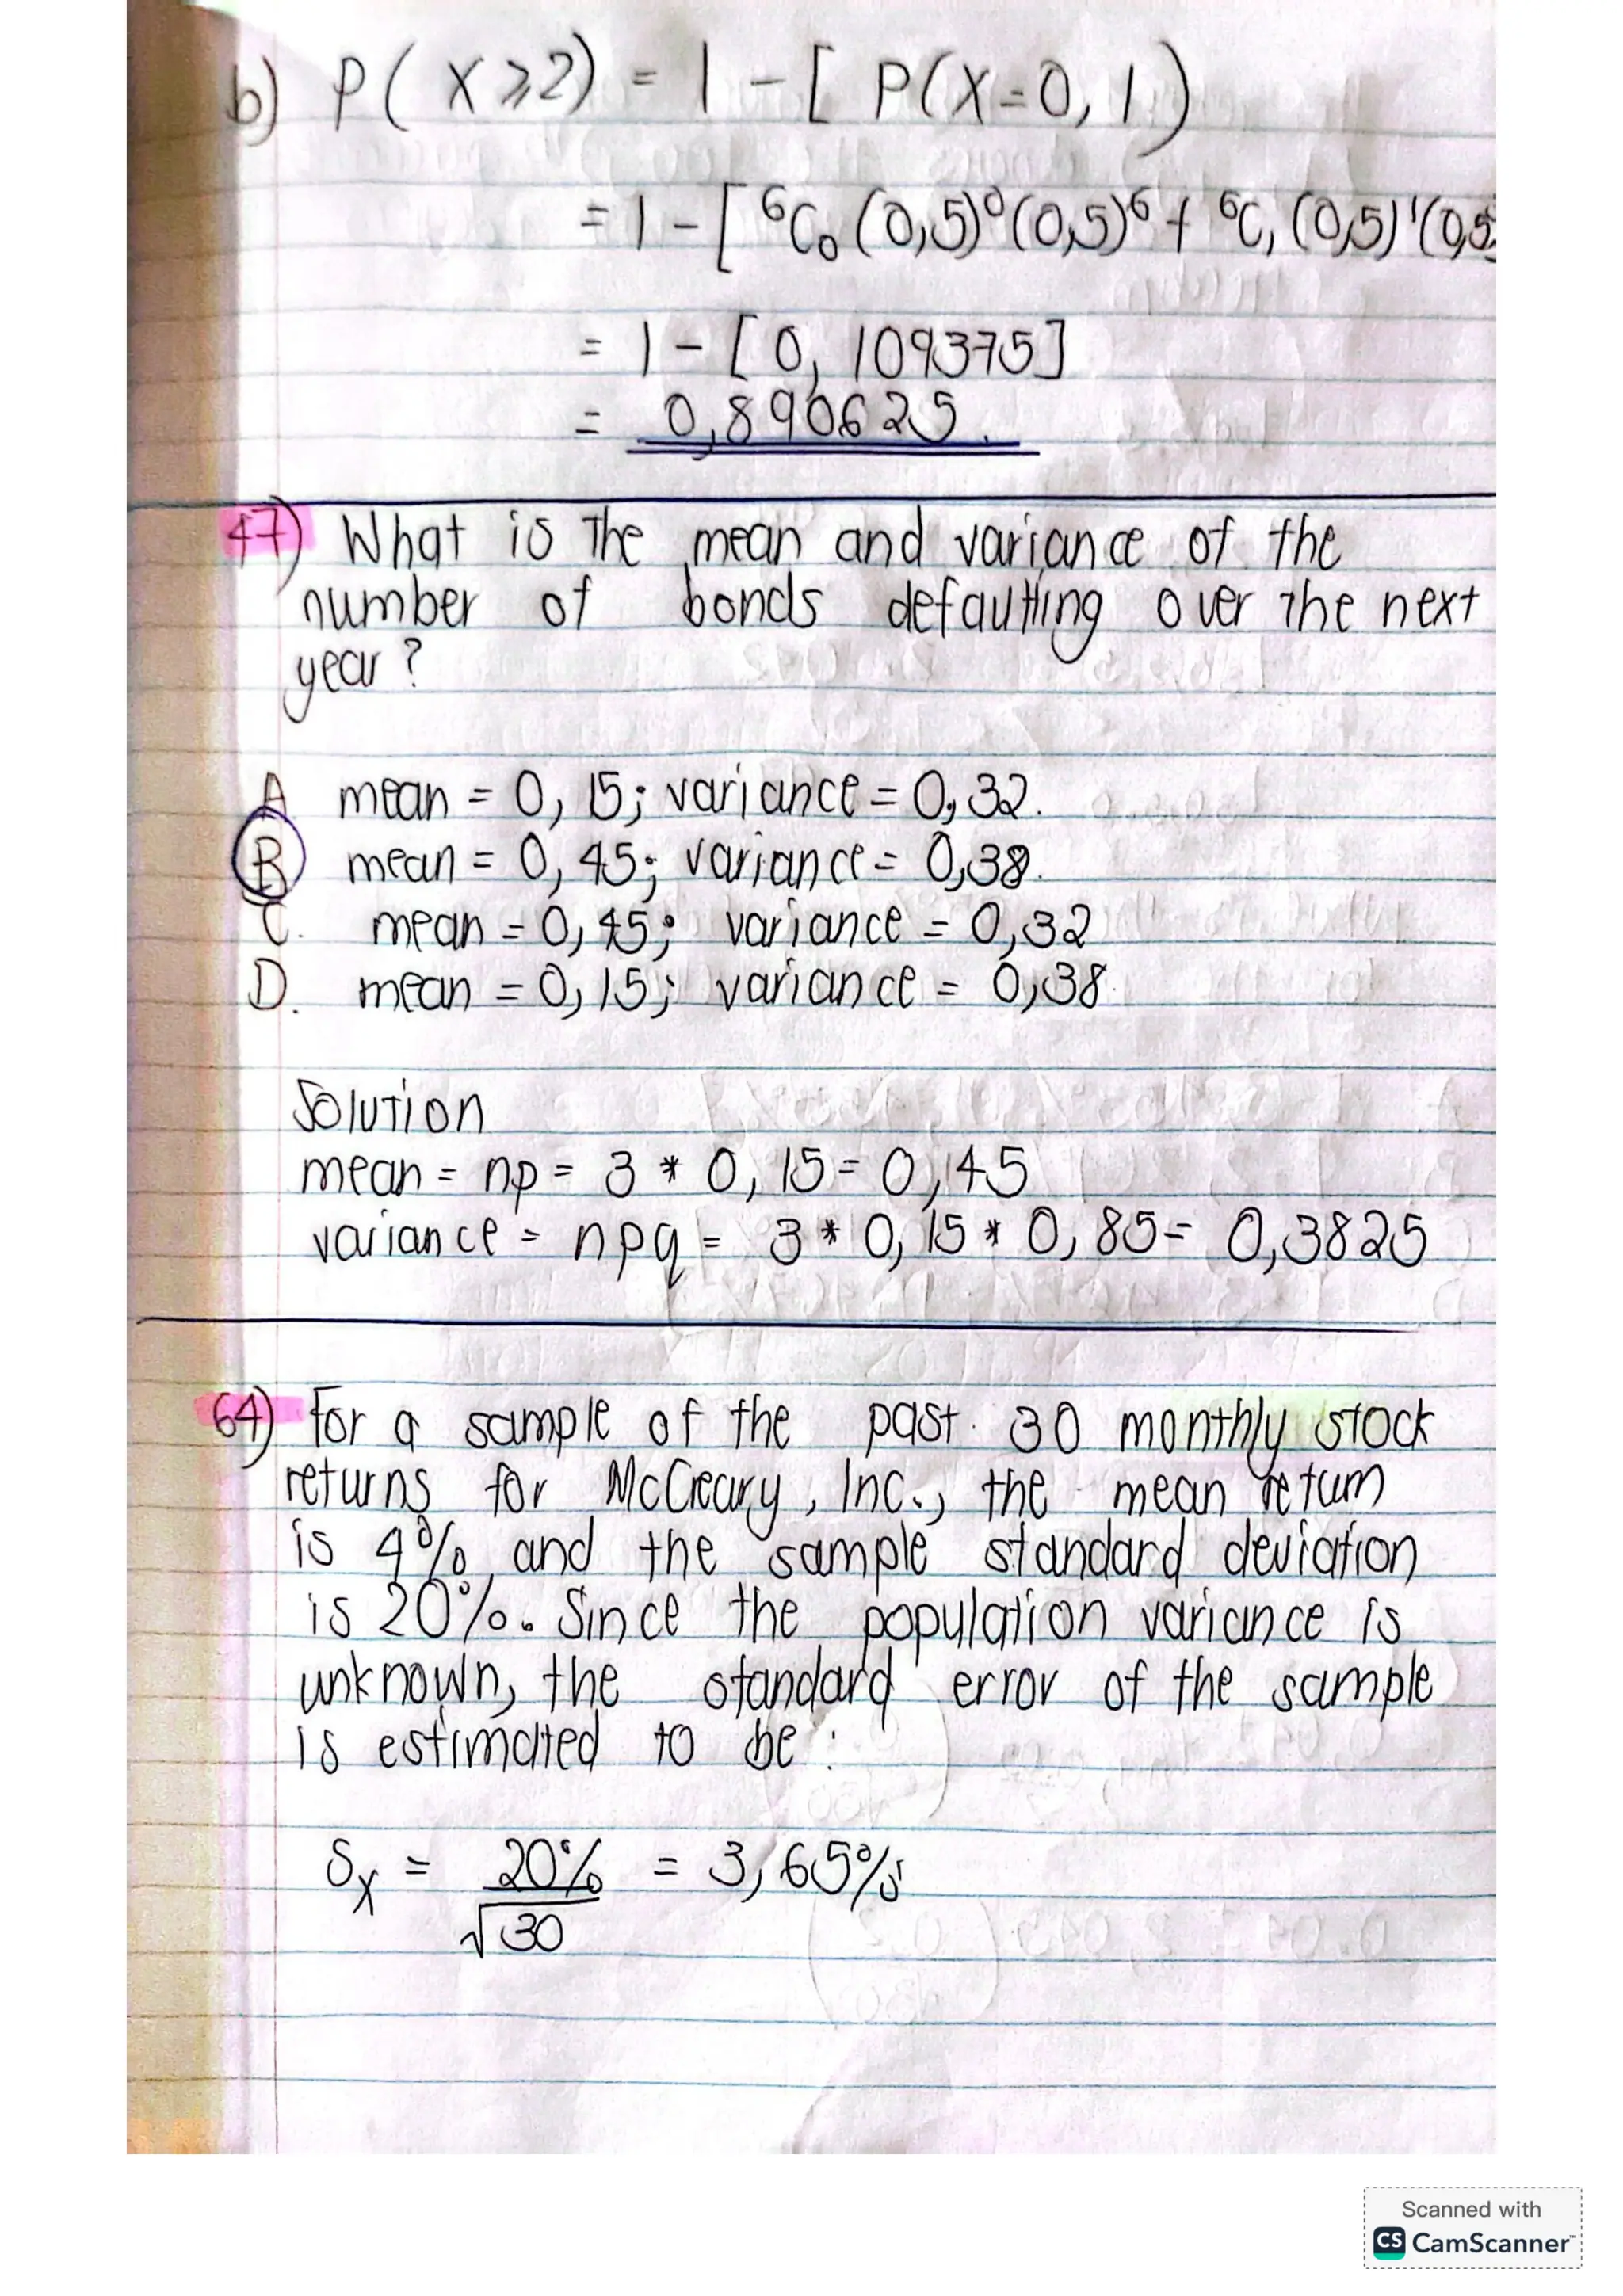 b) P( X ⩾ 2) = 1 - [ P(X = 0, 1)
= 1 - [ ⁶C₀ (0,5)⁰ (0,5)⁶ + ⁶C₁ (0,5)¹ (0,5
= 1 - [ 0, 109375]
= 0,890625.
47) What is the mean and variance of the
number of bonds defaulting over the next
year ?
A mean = 0, 15; variance = 0, 32.
B mean = 0, 45; variance = 0,38.
C. mean = 0, 45; variance = 0,32
D. mean = 0, 15; variance = 0,38.
Solution
mean = np = 3 * 0, 15 = 0, 45
variance = npq = 3 * 0, 15 * 0, 85 = 0,3825
64) For a sample of the past 30 monthly stock
returns for McCreary, Inc., the mean return
is 4% and the sample standard deviation
is 20%. Since the population variance is
unknown, the standard error of the sample
is estimated to be :
Sx = 20% / √30 = 3,65%
Scanned with
CS CamScanner™